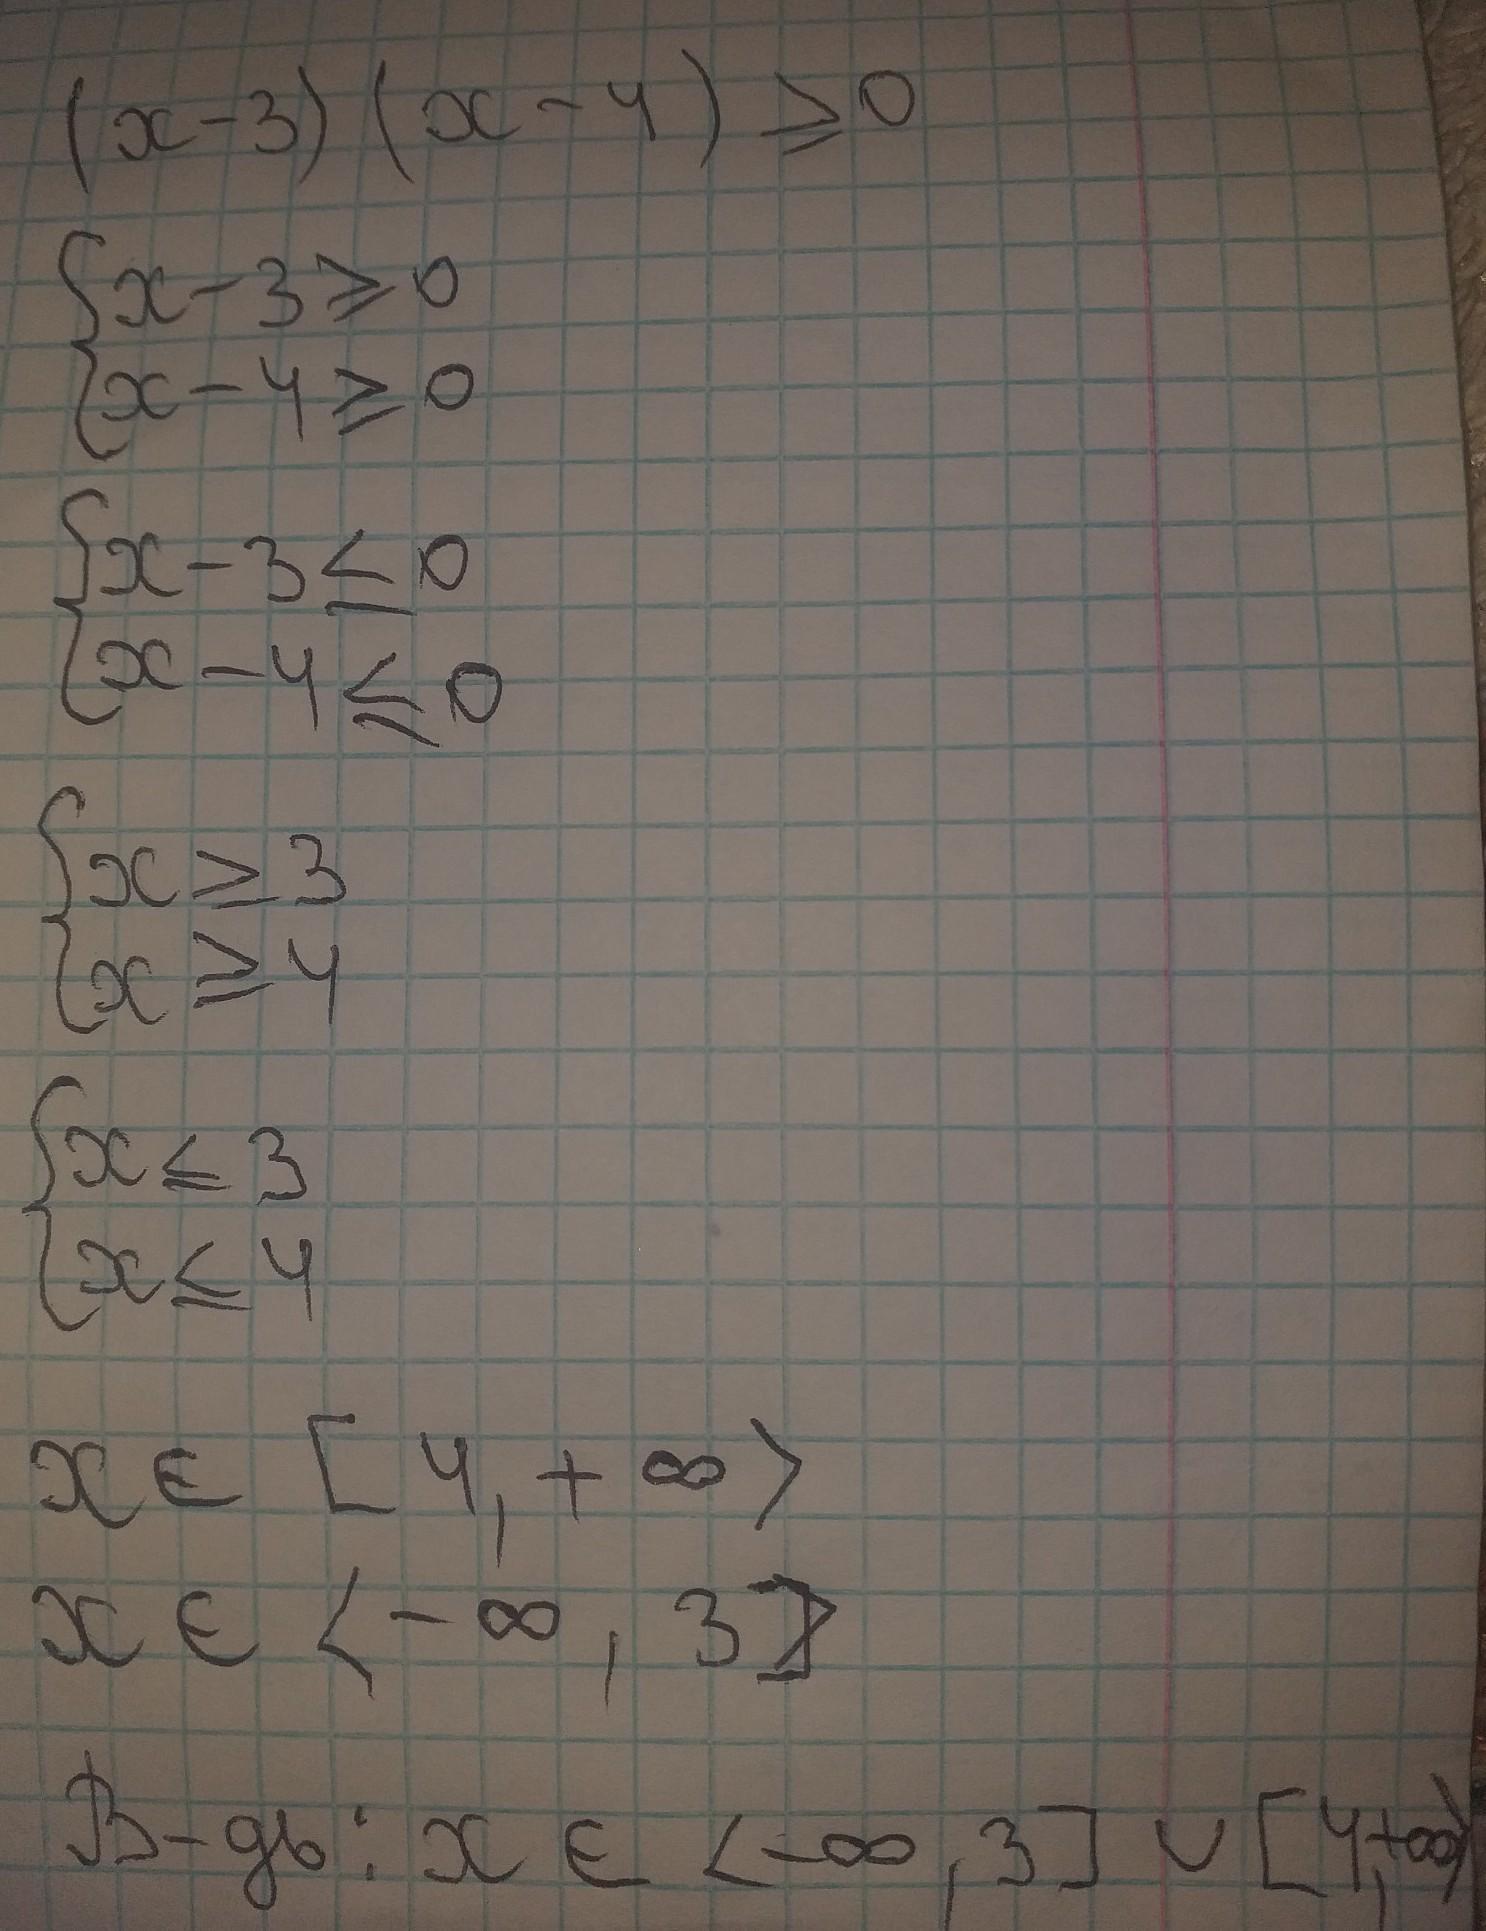 (x-3)(x-4)⩾0
{x-3⩾0
{x-4⩾0
{x-3≤0
{x-4≤0
{x≥3
{x≥4
{x≤3
{x≤4
x∈ [4,+∞>
x∈ <-∞,3]
В-дь: x∈ <-∞,3] ∪ [4,+∞)